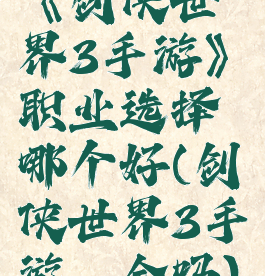 《剑侠世
界3手游》
职业选择
哪个好(剑
侠世界3手
游